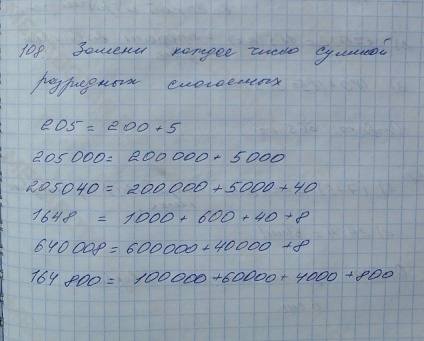 108 Замени каждое число суммой
разрядных слагаемых
205 = 200 + 5
205 000 = 200 000 + 5000
205040 = 200000 + 5000 + 40
1648 = 1000 + 600 + 40 + 8
640 008 = 600000 + 40000 + 8
164 800 = 100 000 + 60000 + 4000 + 800